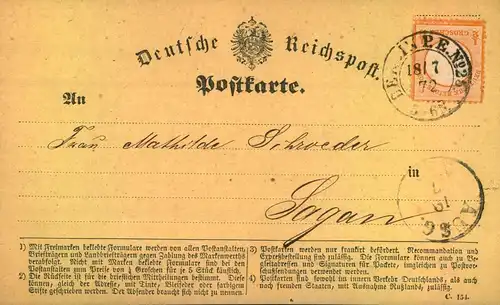 Deutsche Reichspost.
Postkarte.
An
Frau Mathilde Schroeder
in
Sagan
1) Mit Freimarken beklebte Formulare werden von allen Postanstalten, Briefträgern und Landbriefträgern gegen Zahlung des Markenwerths verabfolgt. Nicht mit Marken beklebte Formulare sind bei den Postanstalten zum Preise von ½ Groschen für je 5 Stück käuflich.
2) Die Rückseite ist für die brieflichen Mittheilungen bestimmt. Diese können, gleich der Adresse, mit Tinte, Bleifeder oder farbiger Stifte geschrieben werden. Der Absender braucht sich nicht zu nennen.
3) Postkarten werden nur frankirt befördert. Recommandation und Expreßbestellung sind zulässig. Die Formulare können auch zu Begleitadressen und Signaturen für Packete, imgleichen zu Postvorschußsendungen verwendet werden.
4) Postkarten sind sowohl im innern Verkehr Deutschlands, als auch nach dem Auslande, mit Ausnahme Rußlands, zulässig.
C. 154.